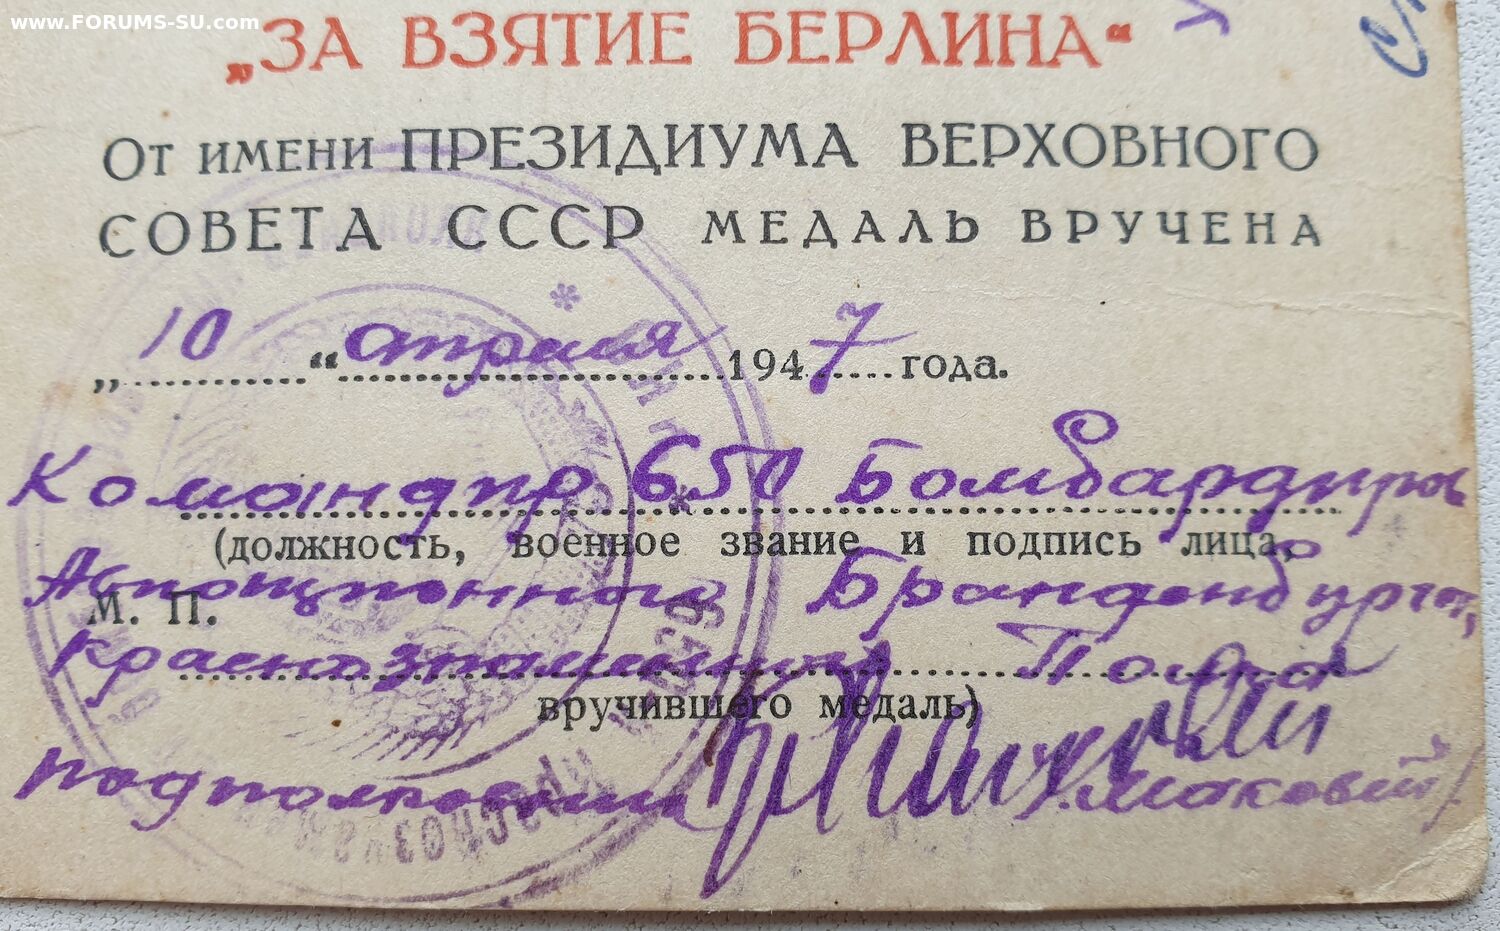 www.FORUMS-SU.com
„ЗА ВЗЯТИЕ БЕРЛИНА“
От имени ПРЕЗИДИУМА ВЕРХОВНОГО
СОВЕТА СССР МЕДАЛЬ ВРУЧЕНА
„10“ апреля 1947 года.
Командир 650 Бомбардиров
(должность, военное звание и подпись лица,
Авиационного Бранденбургск,
М. П.
Краснознаменного Полка
вручившего медаль)
подполковник
/Маковый/